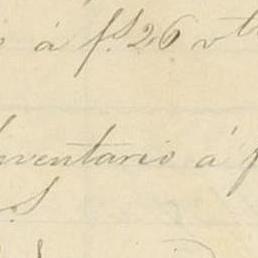 á fs 26 vto
Inventario á f